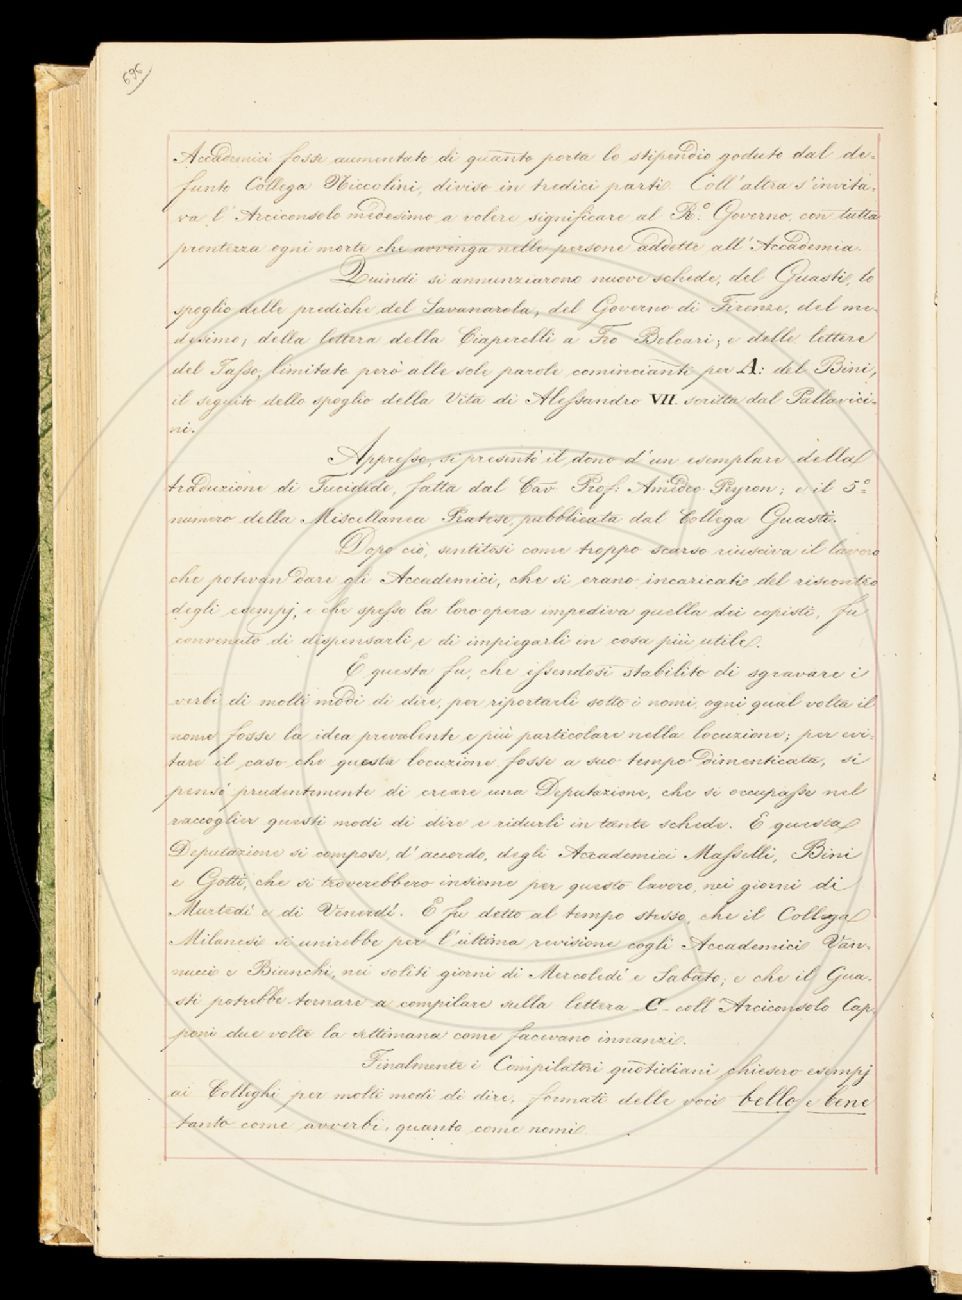 696
Accademici fosse aumentato di quanto porta lo stipendio goduto dal de-
funto Collega Niccolini, diviso in tredici parti. Coll'altra s'invita-
va l'Arciconsolo medesimo a volere significare al R.° Governo, con tutta
prontezza ogni morte che avvenga nelle persone addette all'Accademia.
Quindi si annunziarono nuove schede, del Guasti, lo
spoglio delle prediche del Savanarola, del Governo di Firenze, del me-
desimo; della lettera della Ciaperelli a Feo Belcari; e delle lettere
del Tasso, limitato però alle sole parole comincianti per A: del Bini,
il seguito dello spoglio della Vita di Alessandro VII. scritta dal Pallavici-
ni.
Appresso, si presentò il dono d'un esemplare della
traduzione di Tucidide, fatta dal Cav Prof: Amedeo Peyron; e il 5°
numero della Miscellanea Pratese, pubblicata dal Collega Guasti.
Dopo ciò, sentitosi come troppo scarso riusciva il lavoro
che potevan dare gli Accademici, che si erano incaricati del riscontro
degli esempj, e che spesso la loro opera impediva quella dei copisti, fu
convenuto di dispensarli e di impiegarli in cosa più utile.
E questa fu, che essendosi stabilito di sgravare i
verbi di molti modi di dire, per riportarli sotto i nomi, ogni qual volta il
nome fosse la idea prevalente e più particolare nella locuzione; per evi-
tare il caso che questa locuzione fosse a suo tempo dimenticata, si
pensò prudentemente di creare una Deputazione, che si occupasse nel
raccoglier questi modi di dire e ridurli in tante schede. E questa
Deputazione si compose, d'accordo, degli Accademici Masselli, Bini
e Gotti, che si troverebbero insieme per questo lavoro, nei giorni di
Martedì e di Venerdì. E fu detto al tempo stesso, che il Collega
Milanesi si unirebbe per l'ultima revisione cogli Accademici Van-
nucci e Bianchi, nei soliti giorni di Mercoledì e Sabato; e che il Gua-
sti potrebbe tornare a compilare sulla lettera - C - coll'Arciconsolo Cap-
poni due volte la settimana come facevano innanzi.
Finalmente i Compilatori quotidiani chiesero esempj
ai Colleghi per molti modi di dire, formati delle voci bello e bene
tanto come avverbi, quanto come nomi.